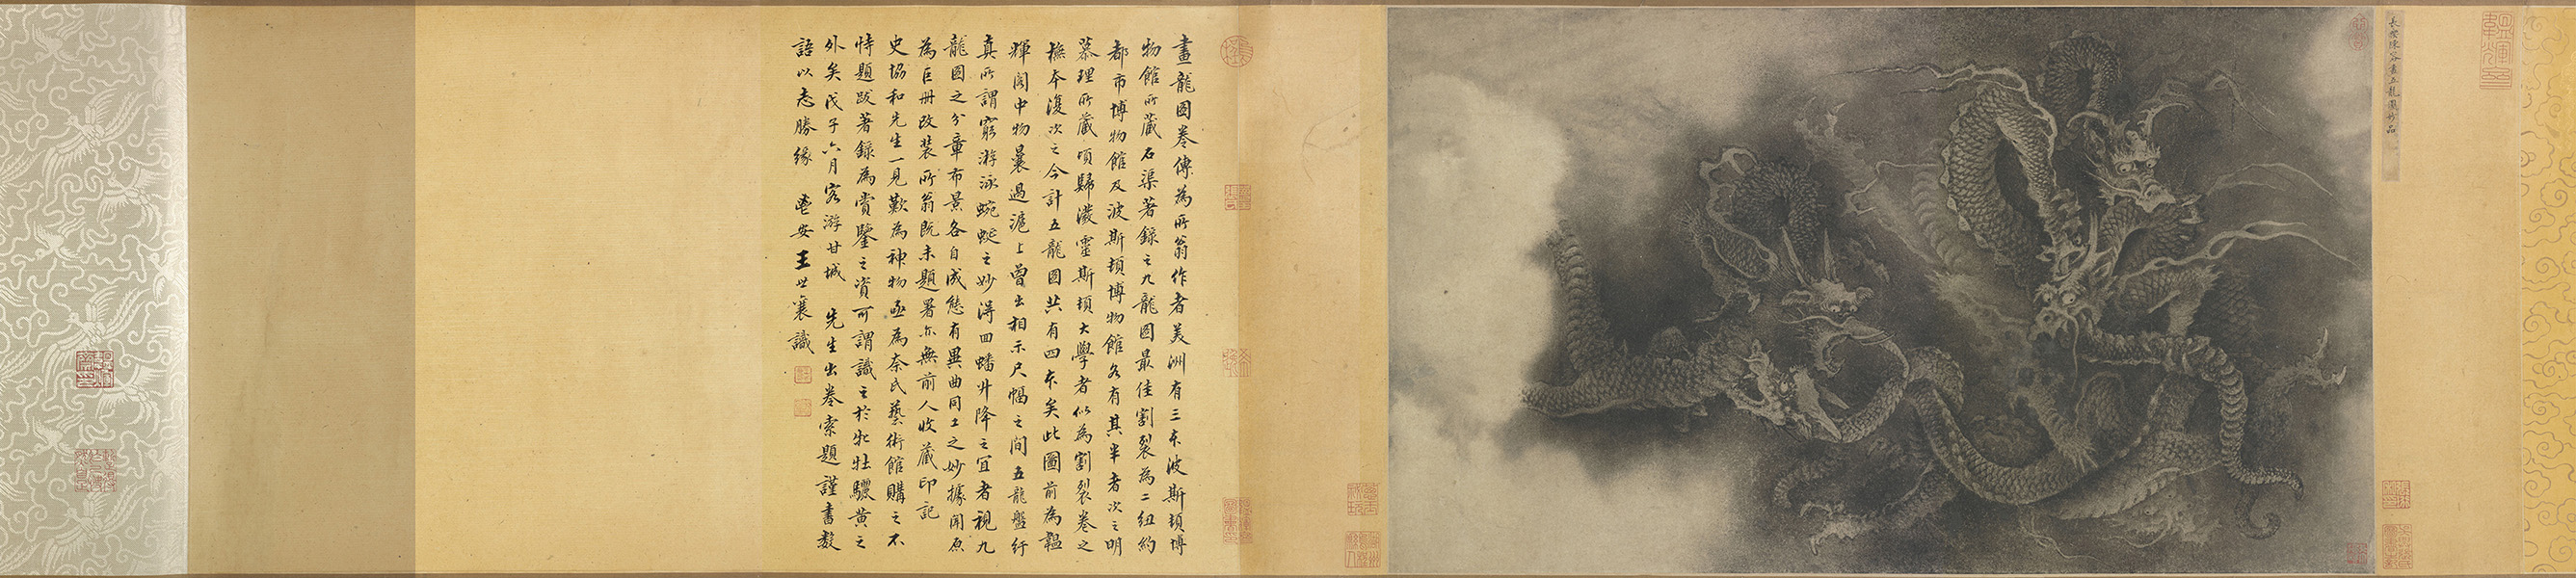 長樂陳容畫五龍圖妙品
畫龍圖卷傳為所翁作者美洲有三本波斯頓博
物館所藏石渠著錄之九龍圖最佳割裂為二紐約
都市博物館及波斯頓博物館各有其半者次之明
慕理所藏頃歸潑靈斯頓大學者似為割裂卷之
橅本復次之今計五龍圖共有四本矣此圖前為韞
輝閣中物曩過滬上曾出相示尺幅之間五龍盤紆
真所謂窮游泳蜿蜒之妙得回蟠升降之宜者視九
龍圖之分章布景各自成態有異曲同工之妙據聞原
為巨冊改裝所翁既未題署亦無前人收藏印記
史協和先生一見歎為神物亟為奈氏藝術館購之不
恃題跋著錄為賞鑒之資可謂識之於牝牡驪黃之
外矣戊子六月客游甘城 先生出卷索題謹書數
語以志勝緣 鬯安王世襄識